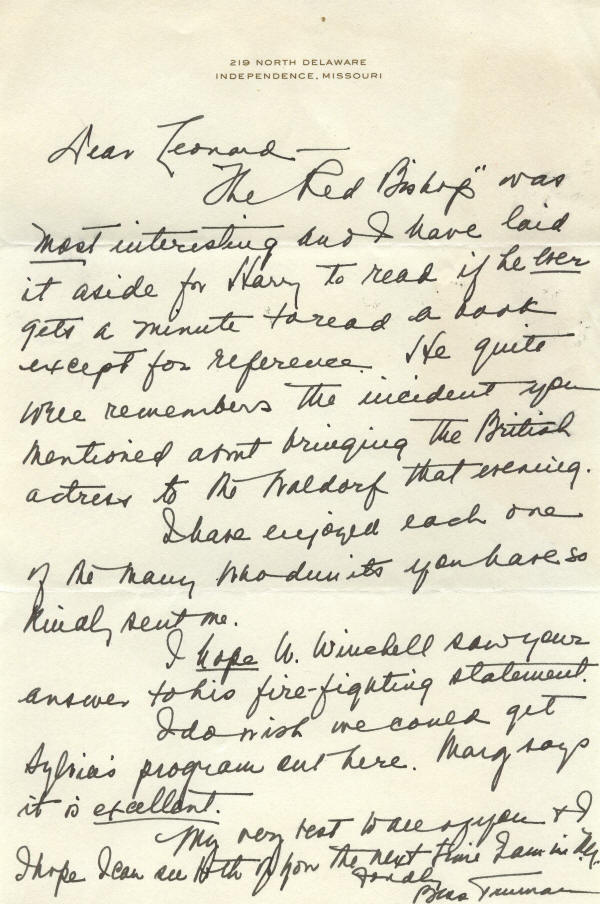 219 NORTH DELAWARE
INDEPENDENCE, MISSOURI
Dear Leonard —
The Red Bishop" was
most interesting and I have laid
it aside for Harry to read if he ever
gets a minute to read a book
except for reference. He quite
well remembers the incident you
mentioned about bringing the British
actress to the Waldorf that evening.
I have enjoyed each one
of the many whodunits you have so
kindly sent me.
I hope W. Winchell saw your
answer to his fire-fighting statement.
I do wish we could get
Sylvia's program out here. Marg says
it is excellent.
My very best to all of you & I
hope I can see both of you the next time I am in N.Y.
Fondly
Bess Truman